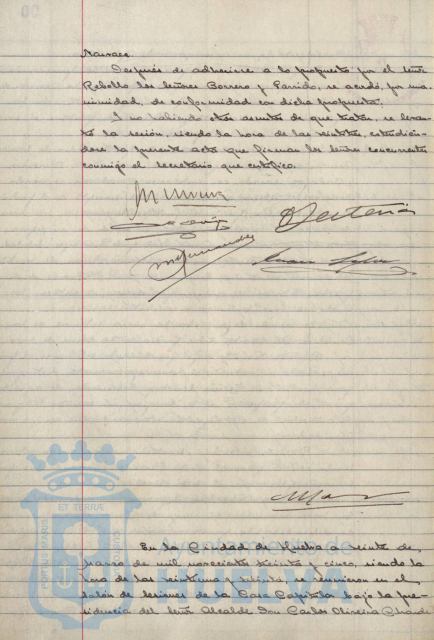 Después de adherirse a lo propuesto por el señor
Rebollo los señores Borrero y Garrido, se acordó, por una-
nimidad, de conformidad con dicha propuesta.
Y no habiendo otros asuntos de que tratar, se levan-
tó la sesión, siendo la hora de las veintitres, extendién-
dose la presente acta que firman los señores concurrentes
conmigo el secretario que certifico.
En la Ciudad de Huelva a veinte de
marzo de mil novecientos treinta y cinco, siendo la
hora de las veintiuna y treinta se reunieron en el
salón de sesiones de la Casa Capitular bajo la pre-
sidencia del señor Alcalde Don Carlos Oliveira Chardenal
ET TERRÆ
PORTUS MARIS
Ayuntamiento de
HUELVA